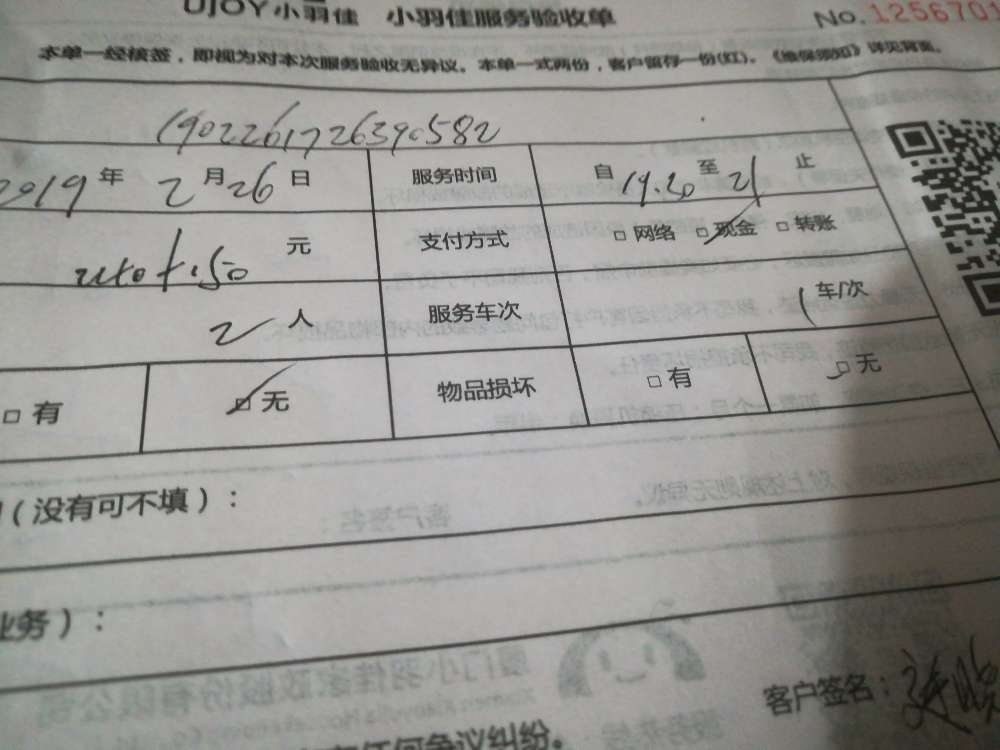 UJOY小羽佳 小羽佳服务验收单
No.1256701
本单一经核签，即视为对本次服务验收无异议。本单一式两份，客户留存一份(红)。《维保须知》详见背面。
1902261726390582
2019年2月26日 服务时间 自19.20至21止
元 支付方式 □网络 □现金 □转账
2人 服务车次 1车/次
□有 □无 物品损坏 □有 □无
（没有可不填）：
业务）：
客户签名：
任何争议纠纷。